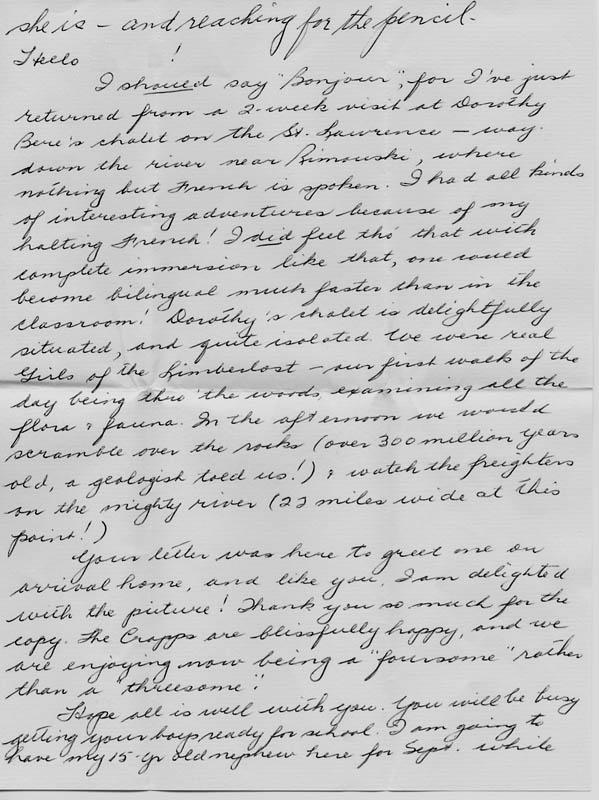 she is - and reaching for the pencil.
Hello !
I should say "Bonjour", for I've just
returned from a 2-week visit at Dorothy
Bere's chalet on the St. Lawrence - way
down the river near Rimouski, where
nothing but French is spoken. I had all kinds
of interesting adventures because of my
halting French! I did feel tho' that with
complete immersion like that, one could
become bilingual much faster than in the
classroom! Dorothy's chalet is delightfully
situated, and quite isolated. We were real
Girls of the Limberlost - our first walk of the
day being thro' the woods, examining all the
flora & fauna. In the afternoon we would
scramble over the rocks (over 300 million years
old, a geologist told us!) & watch the freighters
on the mighty river (22 miles wide at this
point!)
Your letter was here to greet me on
arrival home, and like you, I am delighted
with the picture! Thank you so much for the
copy. The Crapps are blissfully happy, and we
are enjoying now being a "foursome" rather
than a "threesome".
Hope all is well with you. You will be busy
getting your boys ready for school. I am going to
have my 15-yr old nephew here for Sept. while